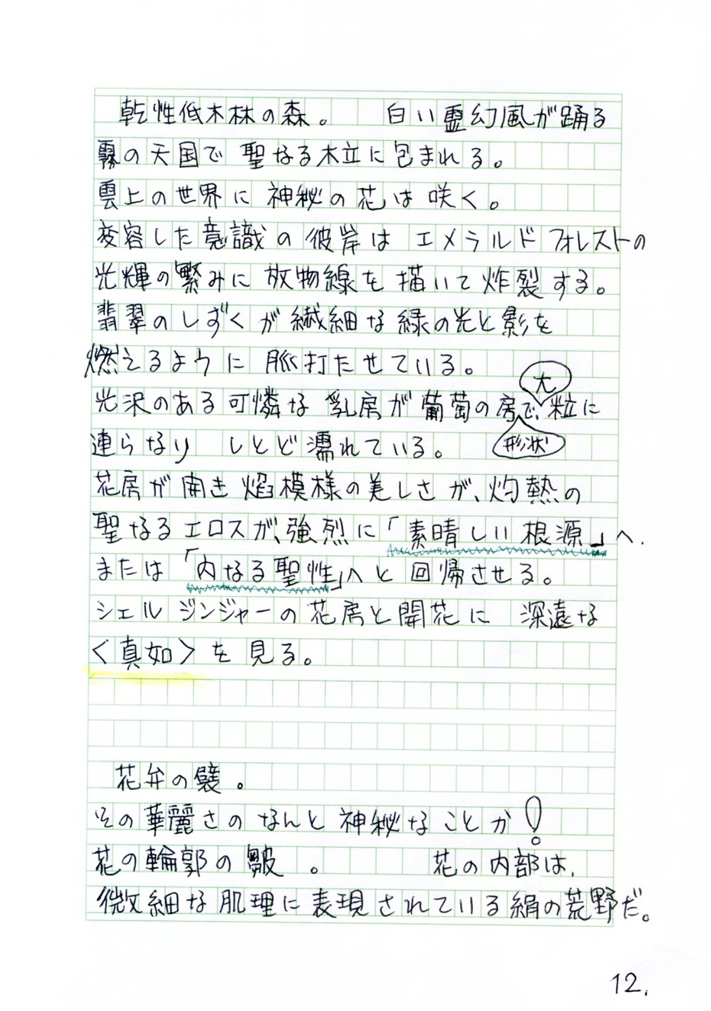 乾性低木林の森。　白い霊幻風が踊る
霧の天国で 聖なる木立に包まれる。
雲上の世界に 神秘の花は 咲く。
変容した意識の 彼岸は エメラルド フォレストの
光輝の繁みに 放物線を 描いて 炸裂する。
翡翠のしずくが 繊細な緑の光と影を
燃えるように 脈打たせている。
光沢のある可憐な 乳房が 葡萄の房で、大粒に
形状
連らなり しとど濡れている。
花房が 開き 焰模様の美しさが、灼熱の
聖なるエロスが、強烈に「素晴しい根源」へ、
または「内なる聖性」へと 回帰させる。
シェル ジンジャーの花房と開花に 深遠な
〈真如〉を見る。
花弁の襞。
その華麗さのなんと神秘なことか！
花の輪郭の皺。　花の内部は、
微細な肌理に表現されている絹の荒野だ。
12.